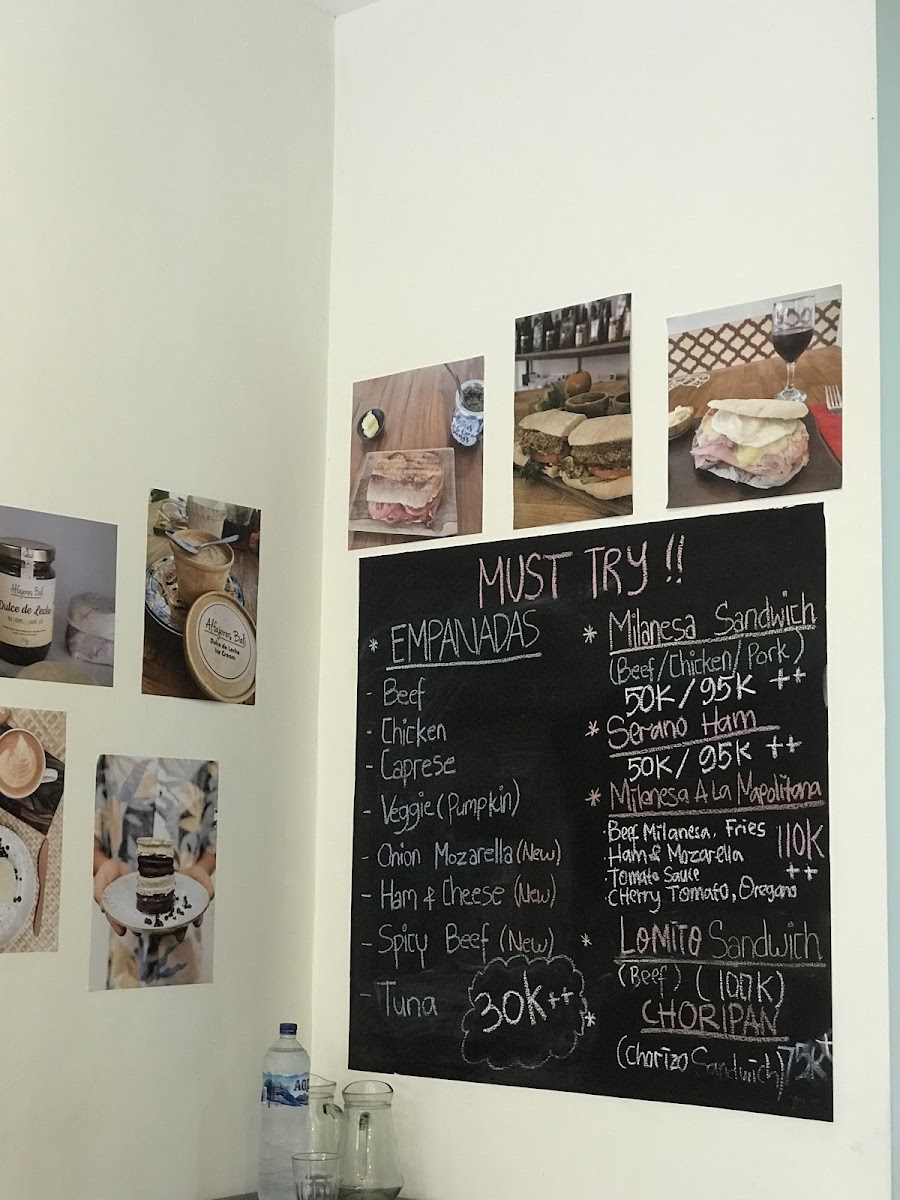 MUST TRY !!
* EMPANADAS
- Beef
- Chicken
- Caprese
- Veggie (Pumpkin)
- Onion Mozarella (New)
- Ham & Cheese (New)
- Spicy Beef (New)
- Tuna
30K++
* Milanesa Sandwich
(Beef/Chicken/Pork)
50K/95K ++
* Serano Ham
50K/95K ++
* Milanesa A La Mapolitana
· Beef Milanesa, Fries
· Ham & Mozarella
· Tomato Sauce
· CHerry Tomato, Oregano
110K
++
* LOMITO Sandwich
(Beef) (107K)
* CHORIPAN
(Chorizo Sandwich) 75K+
Alfajores Bali
Dulce de Leche
Alfajores Bali
Dulce de Leche
Ice Cream